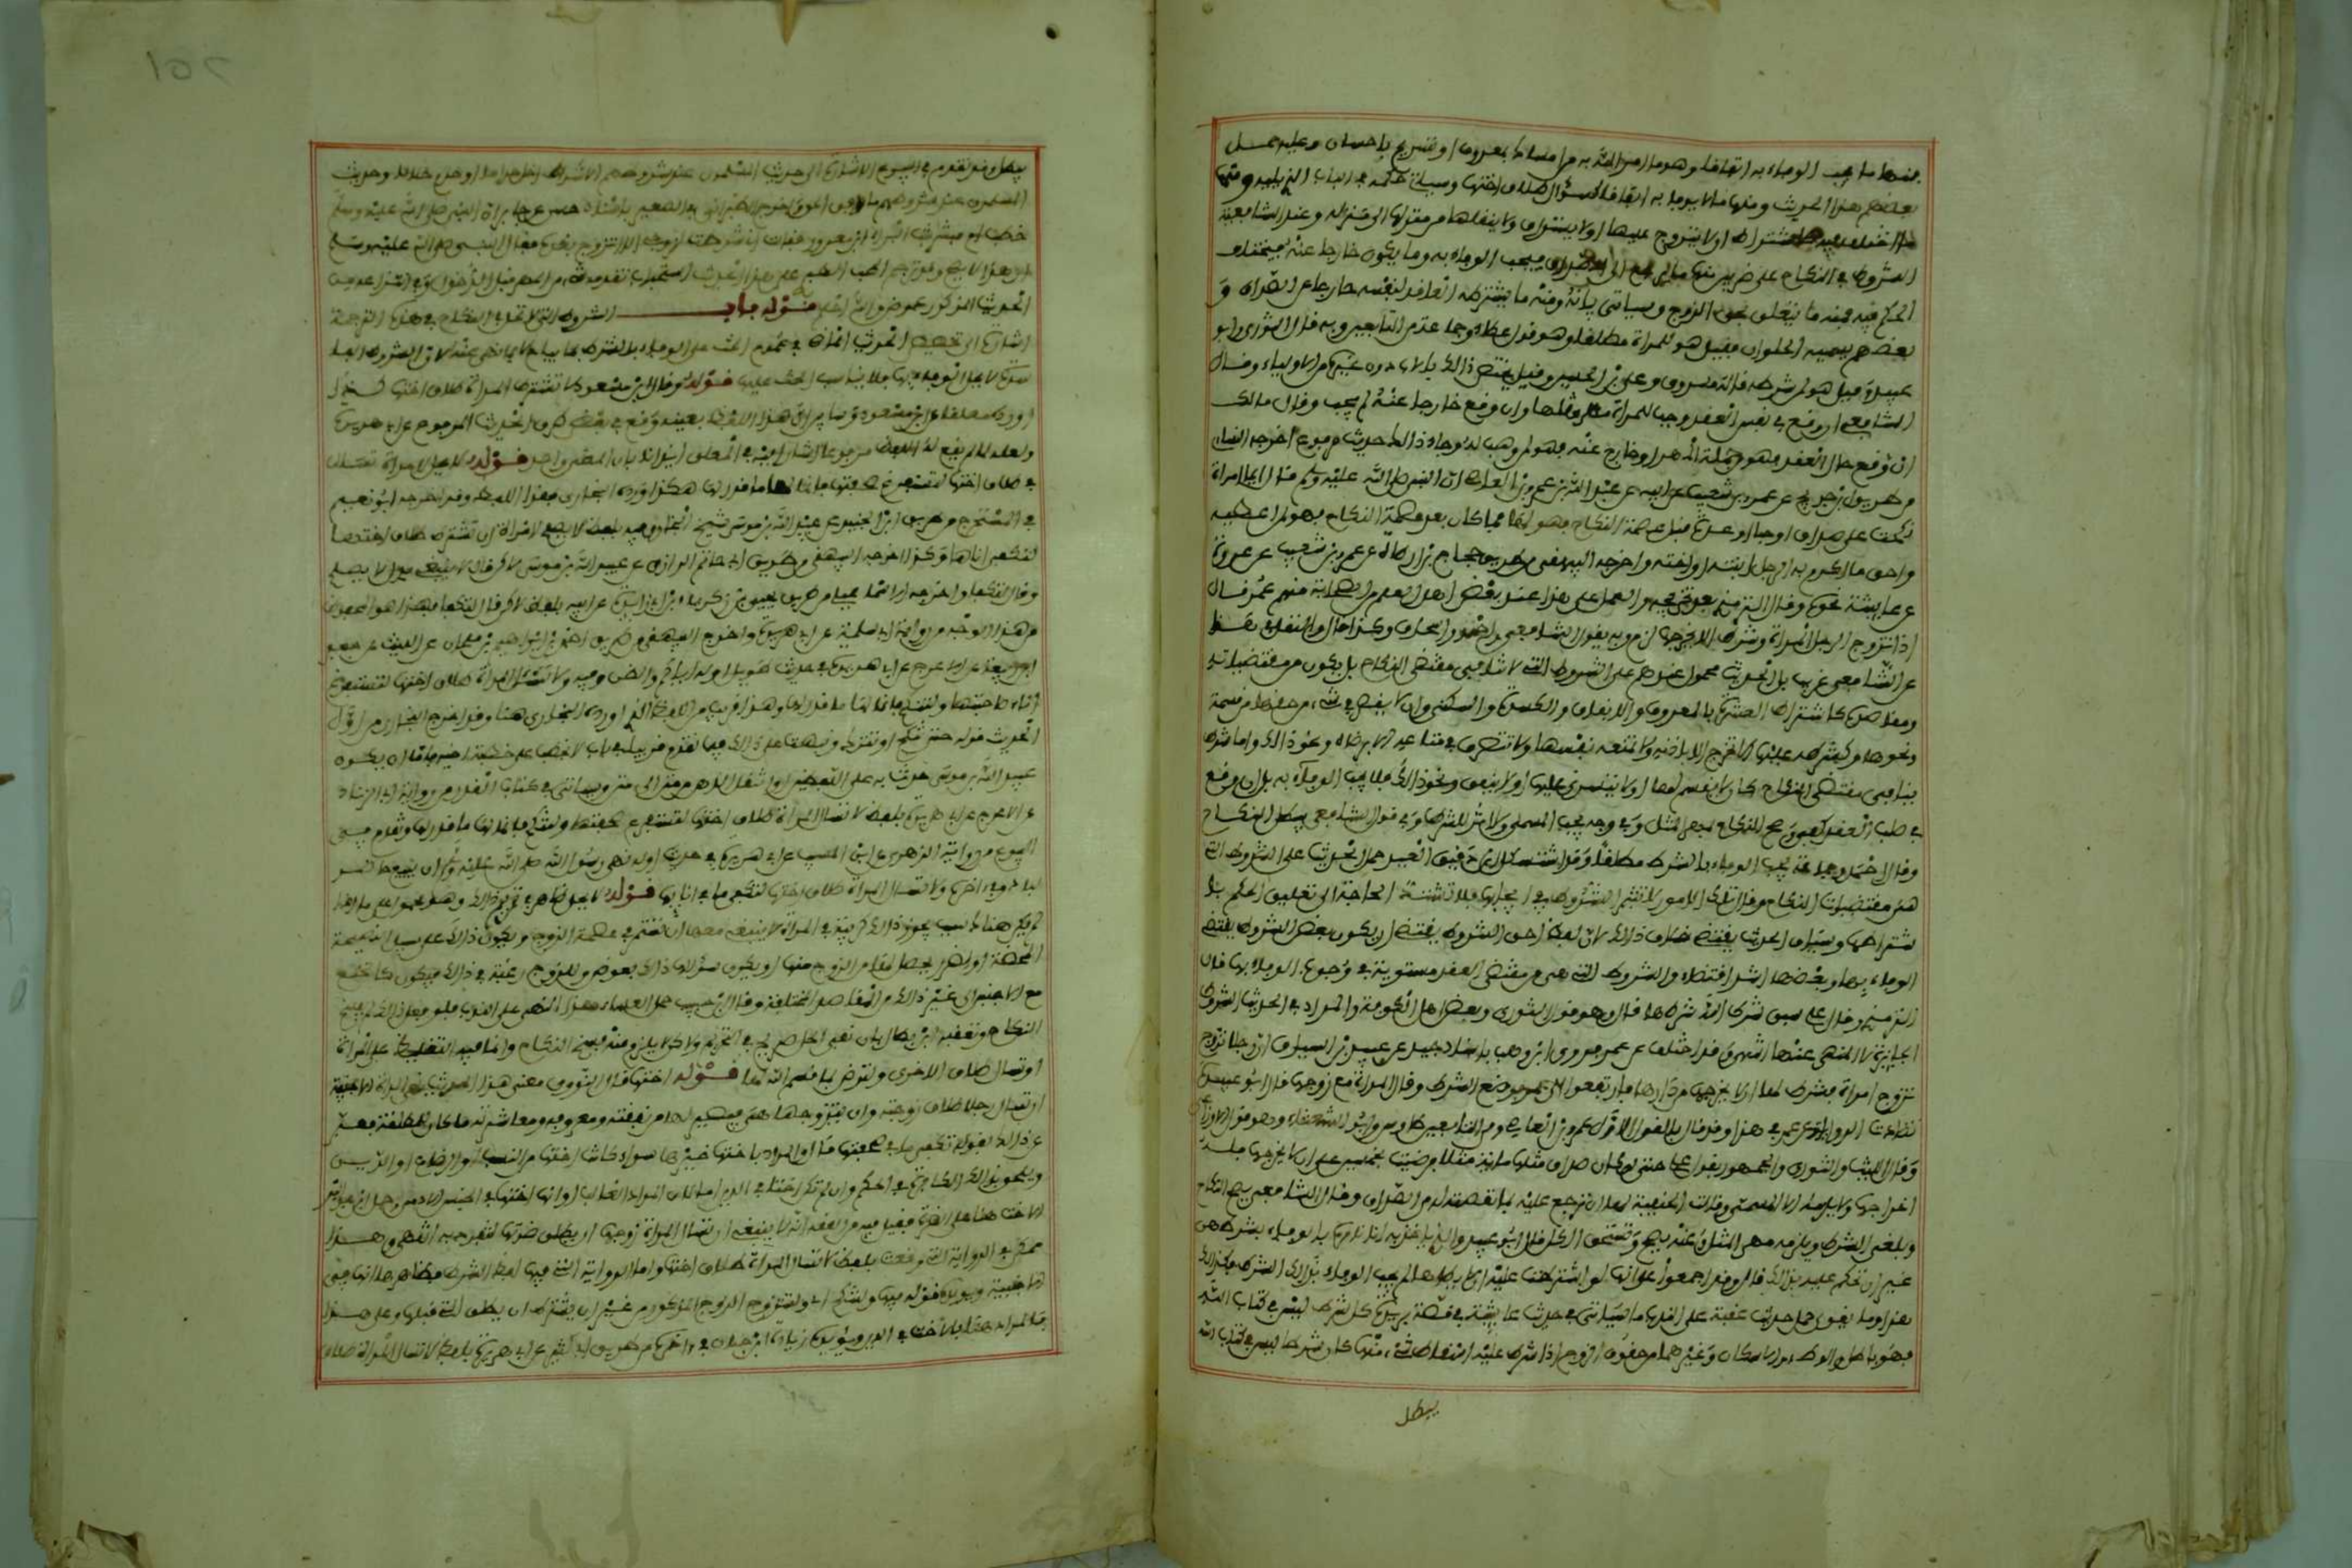 فمنها ما يجب الوفاء به اتفاقا وهو ما امر الله به من امساك بمعروف او تسريح باحسان وعليه حمل
بعضهم هذا الحديث ومنها ما لا يوفى به اتفاقا كسؤال طلاق اختها وسياتي حكمه في الباب الذي يليه ومنها
ما اختلف فيه كاشتراط ان لا يتزوج عليها او لا يتسرى او لا ينقلها من منزلها الى منزله وعند الشافعية
الشروط في النكاح على ضربين منها ما يرجع الى الصداق فيجب الوفاء به وما يكون خارجا عنه فيختلف
الحكم فيه فمنه ما يتعلق بحق الزوج وسياتي بيانه ومنه ما يشترطه العاقد لنفسه خارجا عن الصداق و
بعضهم يسميه الحلوان فقيل هو للمراة مطلقا وهو قول عطاء وجماعة من التابعين وبه قال الثوري وابو
عبيد وقيل هو لمن شرطه قاله مسروق وعلي بن الحسين وقيل يختص ذلك بالاب دون غيره من الاولياء وقال
الشافعي ان وقع في نفس العقد وجب للمراة مهر مثلها وان وقع خارجا عنه لم يجب وقال مالك
ان وقع حال العقد فهو من جملة المهر او خارج عنه فهو لمن وهب له وجاء ذلك في حديث مرفوع اخرجه النسائي
من طريق ابن جريج عن عمرو بن شعيب عن ابيه عن عبد الله بن عمرو بن العاص ان النبي صلى الله عليه وسلم قال ايما امراة
نكحت على صداق او حباء او عدة قبل عصمة النكاح فهو لها فما كان بعد عصمة النكاح فهو لمن اعطيه
واحق ما اكرم به الرجل ابنته او اخته واخرجه البيهقي من طريق حجاج بن ارطاة عن عمرو بن شعيب عن عروة
عن عايشة نحوه وقال الترمذي بعد تخريجه والعمل على هذا عند بعض اهل العلم من الصحابة منهم عمر قال
اذا تزوج الرجل المراة وشرط ان لا يخرجها لزم وبه يقول الشافعي واحمد واسحاق وكذا قال والنقل في هذا
عن الشافعي غريب بل الحديث محمول عندهم على الشروط التي لا تنافي مقتضى النكاح بل تكون من مقتضياته
ومقاصده كاشتراط العشرة بالمعروف والانفاق والكسوة والسكنى وان لا يقصر في شيء من حقها من قسمة
ونحوها وكشرطه عليها الا تخرج الا باذنه ولا تمنعه نفسها ولا تتصرف في متاعه الا برضاه ونحو ذلك واما شرط
ينافي مقتضى النكاح كان لا يقسم لها او لا يتسرى عليها او لا ينفق ونحو ذلك فلا يجب الوفاء به بل ان وقع
في صلب العقد كفى وصح النكاح بمهر المثل وفي وجه يجب المسمى ولا اثر للشرط وفي قول للشافعي يبطل النكاح
وقال احمد وجماعة يجب الوفاء بالشرط مطلقا وقد استشكل ابن دقيق العيد حمل الحديث على الشروط التي
هي من مقتضيات النكاح وقال تلك الامور لا تؤثر الشروط في ايجابها فلا تشتد الحاجة الى تعليق الحكم با
شتراطها وسياق الحديث يقتضي خلاف ذلك لان لفظ احق الشروط يقتضي ان يكون بعض الشروط يقتضي
الوفاء بها وبعضها اشد اقتضاء والشروط التي هي من مقتضى العقد مستوية في وجوب الوفاء بها قال
الترمذي وقال علي سبق شرط الله شرطها قال وهو قول الثوري وبعض اهل الكوفة والمراد في الحديث الشروط
الجايزة لا المنهي عنها انتهى وقد اختلف عن عمر فروى ابن وهب باسناد جيد عن عبيد بن السباق ان رجلا تزوج
تزوج امراة فشرط لها ان لا يخرجها من دارها فارتفعوا الى عمر فوضع الشرط وقال المراة مع زوجها قال ابو عبيد
تضادت الروايات عن عمر في هذا وقد قال بالقول الاول عمرو بن العاصي ومن التابعين طاوس وابو الشعثاء وهو قول الاوزاعي
وقال الليث والثوري والجمهور بقول علي حتى لو كان صداق مثلها ماية مثلا فرضيت بخمسين على ان لا يخرجها فله
اخراجها ولا يلزمه الا المسمى وقالت الحنفية لها ان ترجع عليه بما نقصته له من الصداق وقال الشافعي يصح النكاح
ويلغى الشرط ويلزمه مهر المثل وعنه يصح وتستحق الكل قال ابو عبيد والذي ناخذ به انا نامره بالوفاء بشرطه من
غير ان نحكم عليه بذلك قال وقد اجمعوا على انها لو اشترطت عليه ان لا يطاها لم يجب الوفاء بذلك الشرط فكذلك
هذا ومما يقوي حمل حديث عقبة على الندب ما سياتي في حديث عايشة في قصة بريرة كل شرط ليس في كتاب الله
فهو باطل والوطء والاسكان وغيرهما من حقوق الزوج اذا شرط عليه اسقاط شيء منها كان شرطا ليس في كتاب الله
يبطل
فيبطل وقد تقدم في البيوع الاشارة الى حديث المسلمون عند شروطهم الا شرطا احل حراما او حرم حلالا وحديث
المسلمون عند شروطهم ما وافق الحق واخرج الطبراني في الصغير باسناد حسن عن جابر ان النبي صلى الله عليه وسلم
خطب ام مبشر بنت البراء بن معرور فقالت اني شرطت لزوجي ان لا اتزوج بعده فقال النبي صلى الله عليه وسلم
ان هذا لا يصح وقد ترجم المحب الطبري على هذا الحديث استحباب تقدمة شيء من المهر قبل الدخول وفي انتزاعه من
الحديث المذكور غموض والله اعلم قوله باب الشروط التي لا تحل في النكاح في هذه الترجمة
اشارة الى تخصيص الحديث الماضي في عموم الحث على الوفاء بالشرط بما يباح لا بما نهي عنه لان الشروط الفا
سدة لا يحل الوفاء بها فلا يناسب الحث عليها قوله وقال ابن مسعود لا تشترط المراة طلاق اختها كذا
اورده معلقا عن ابن مسعود وسابين ان هذا اللفظ بعينه وقع في بعض طرق الحديث المرفوع عن ابي هريرة
ولعله لما لم يقع له اللفظ مرفوعا اشار اليه في المعلق ايذانا بان المعنى واحد قوله لا يحل لامراة تسال
طلاق اختها لتستفرغ صحفتها فانما لها ما قدر لها هكذا اورده البخاري بهذا اللفظ وقد اخرجه ابو نعيم
في المستخرج من طريق ابن الجنيد عن عبيد الله بن موسى شيخ البخاري فيه بلفظ لا يصلح لامراة ان تشترط طلاق اختها
لتكفئ اناءها وكذا اخرجه البيهقي من طريق ابي حاتم الرازي عن عبيد الله بن موسى لا كن قال لا ينبغي بدل لا يصلح
وقال لتكفا واخرجه الاسماعيلي من طريق يحيى بن زكريا بن ابي زايدة عن ابيه بلفظ لا كن قال لتكفا فهذا هو المحفوظ
من هذا الوجه من رواية ابي سلمة عن ابي هريرة واخرج البيهقي من طريق احمد بن ابراهيم بن ملحان عن الليث عن جعفر
ابن ربيعة عن الاعرج عن ابي هريرة في حديث طويل اوله اياكم والظن وفيه ولا تسال المراة طلاق اختها لتستفرغ
اناء صاحبتها ولتنكح فانما لها ما قدر لها وهذا قريب من اللفظ الذي اورده البخاري هنا وقد اخرج البخاري من اول
الحديث قوله حتى ينكح او يترك ونبهت على ذلك فيما تقدم قريبا في باب لا يخطب على خطبة اخيه فاما ان يكون
عبيد الله بن موسى حدث به على اللفظين او انتقل الذهن من متن الى متن وسياتي في كتاب القدر من رواية ابي الزناد
عن الاعرج عن ابي هريرة بلفظ لا تسال المراة طلاق اختها لتستفرغ صحفتها ولتنكح فانما لها ما قدر لها وتقدم في
البيوع من رواية الزهري عن ابن المسيب عن ابي هريرة في حديث اوله نهى رسول الله صلى الله عليه وسلم ان يبيع حاضر
لباد وفي اخره ولا تسال المراة طلاق اختها لتكفئ ما في انائها قوله لا يحل ظاهر في تحريم ذلك وهو محمول على ما اذا
لم يكن هناك سبب يجوز ذلك كريبة في المراة لا ينبغي معها ان تستمر في عصمة الزوج ويكون ذلك على سبيل النصيحة
المحضة او لضرر يحصل لها من الزوج منها او يكون سؤالها ذلك بعوض وللزوج رغبة في ذلك فيكون كالخلع
مع الاجنبي الى غير ذلك من المقاصد المختلفة وقال ابن حبيب حمل العلماء هذا النهي على الندب فلو فعل ذلك لم يفسخ
النكاح وتعقبه ابن بطال بان نفي الحل صريح في التحريم ولا كن لا يلزم منه فسخ النكاح وانما فيه التغليظ على المراة
ان تسال طلاق الاخرى ولترض بما قسم الله لها قوله اختها قال النووي معنى هذا الحديث نهي المراة الاجنبية
ان تسال رجلا طلاق زوجته وان يتزوجها هي فيصير لها من نفقته ومعروفه ومعاشرته ما كان للمطلقة فعبر
عن ذلك بقوله تكفئ ما في صحفتها قال والمراد باختها غيرها سواء كانت اختها من النسب او الرضاع او الدين
ويلحق بذلك الكافرة في الحكم وان لم تكن اختا في الدين اما لان المراد الغالب او انها اختها في الجنس الادمي وحمل ابن عبد البر
الاخت هنا على الضرة فقيل فيه من الفقه انه لا ينبغي ان تسال المراة زوجها ان يطلق ضرتها لتنفرد به انتهى وهذا
يمكن في الرواية التي وقعت بلفظ لا تسال المراة طلاق اختها واما الرواية التي فيها لفظ الشرط فظاهرها انها في
الاجنبية ويؤيده قوله فيها ولتنكح اي ولتتزوج الزوج المذكور من غير ان يشترط ان يطلق التي قبلها وعلى هذا
فالمراد هنا بالاخت في الدين ويؤيده زيادة ابن حبان في اخره من طريق ابي كثير عن ابي هريرة بلفظ لا تسال المراة طلاق